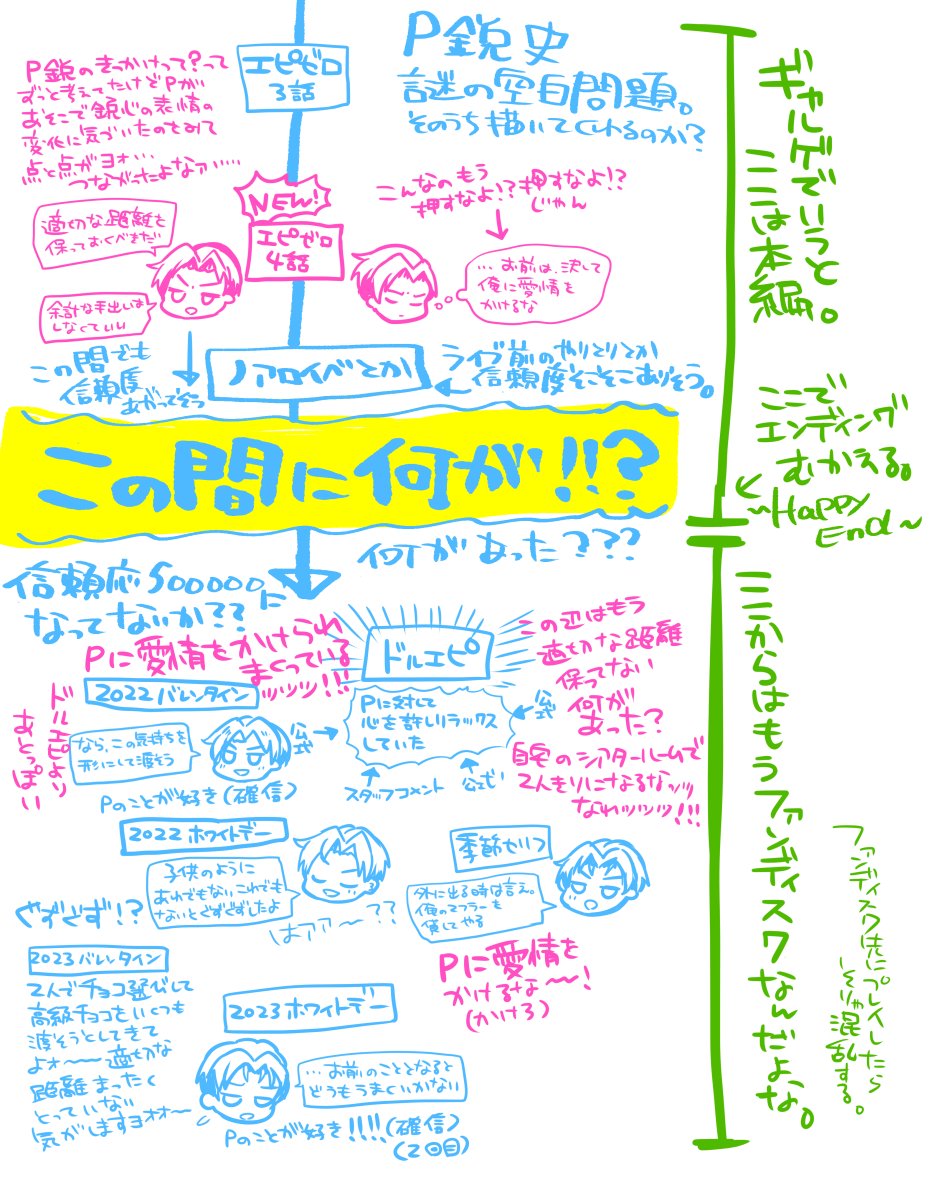 P鋭史
謎の空白問題。
そのうち描いてくれるのか?
エピゼロ
3話
P鋭のきっかけって?って
ずっと考えてたけどPが
あそこで鋭心の表情の
変化に気づいたのをみて
点と点がヨォ…
つながったよなァ……
NEW!
エピゼロ
4話
適切な距離を
保っておくべきだ
余計な手出しは
しなくていい
こんなのもう
押すなよ!?押すなよ!?
じゃん
…お前は、決して
俺に愛情を
かけるな
この間でも
信頼度
あがってそう
ノアロイベとか
ライブ前のやりとりとか
信頼度そこそこありそう。
この間に何が!!?
何があった???
信頼応500000に
なってないか??
Pに愛情をかけられ
まくっている
ッッッ!!!
ドルエピ
Pに対して
心を許しリラックス
していた
公式
公式
スタッフコメント
公式!
この辺はもう
適切な距離
保ってない
何が
あった?
自宅のシアタールームで
2人きりになるなッッ
なれッッッ!!!
ドルエピより
あとっぽい
2022バレンタイン
なら、この気持ちを
形にして渡そう
Pのことが好き(確信)
2022ホワイトデー
子供のように
あれでもないこれでも
ないとぐずぐずしたよ
ぐずぐず!?
はアァ〜??
季節セリフ
外に出る時は言え。
俺のマフラーを
貸してやる
Pに愛情を
かけるな〜!
(かけろ)
2023バレンタイン
2人でチョコ選びして
高級チョコをいくつも
渡そうとしてきて
よォ〜〜適切な
距離まったく
とっていない
気がしますヨォォ〜
2023ホワイトデー
…お前のこととなると
どうもうまくいかない
Pのことが好き!!!!(確信)
(2回目)
ギャルゲでいうと
ここは本編。
ここで
エンディング
むかえる。
~Happy
End~
ここからはもうファンディスクなんだよな。
ファンディスク先にプレイしたら
そりゃ混乱する。